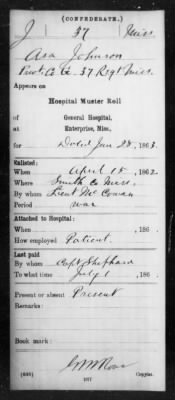 (CONFEDERATE.)
J 37 Miss.
Asa Johnson
Pvt Co. G. 37 Regt Miss.
Appears on
Hospital Muster Roll
of
General Hospital,
at
Enterprise, Miss.,
for Dated Jan 28, 1863.
Enlisted:
When April 18, 1862
Where Smith Co Miss.
By whom Lieut McCowan
Period war
Attached to Hospital:
When , 186 .
How employed Patient.
Last paid
By whom Capt Shephard
To what time July 1 , 186 .
Present or absent Present
Remarks:
Book mark:
(695)
Copyist.